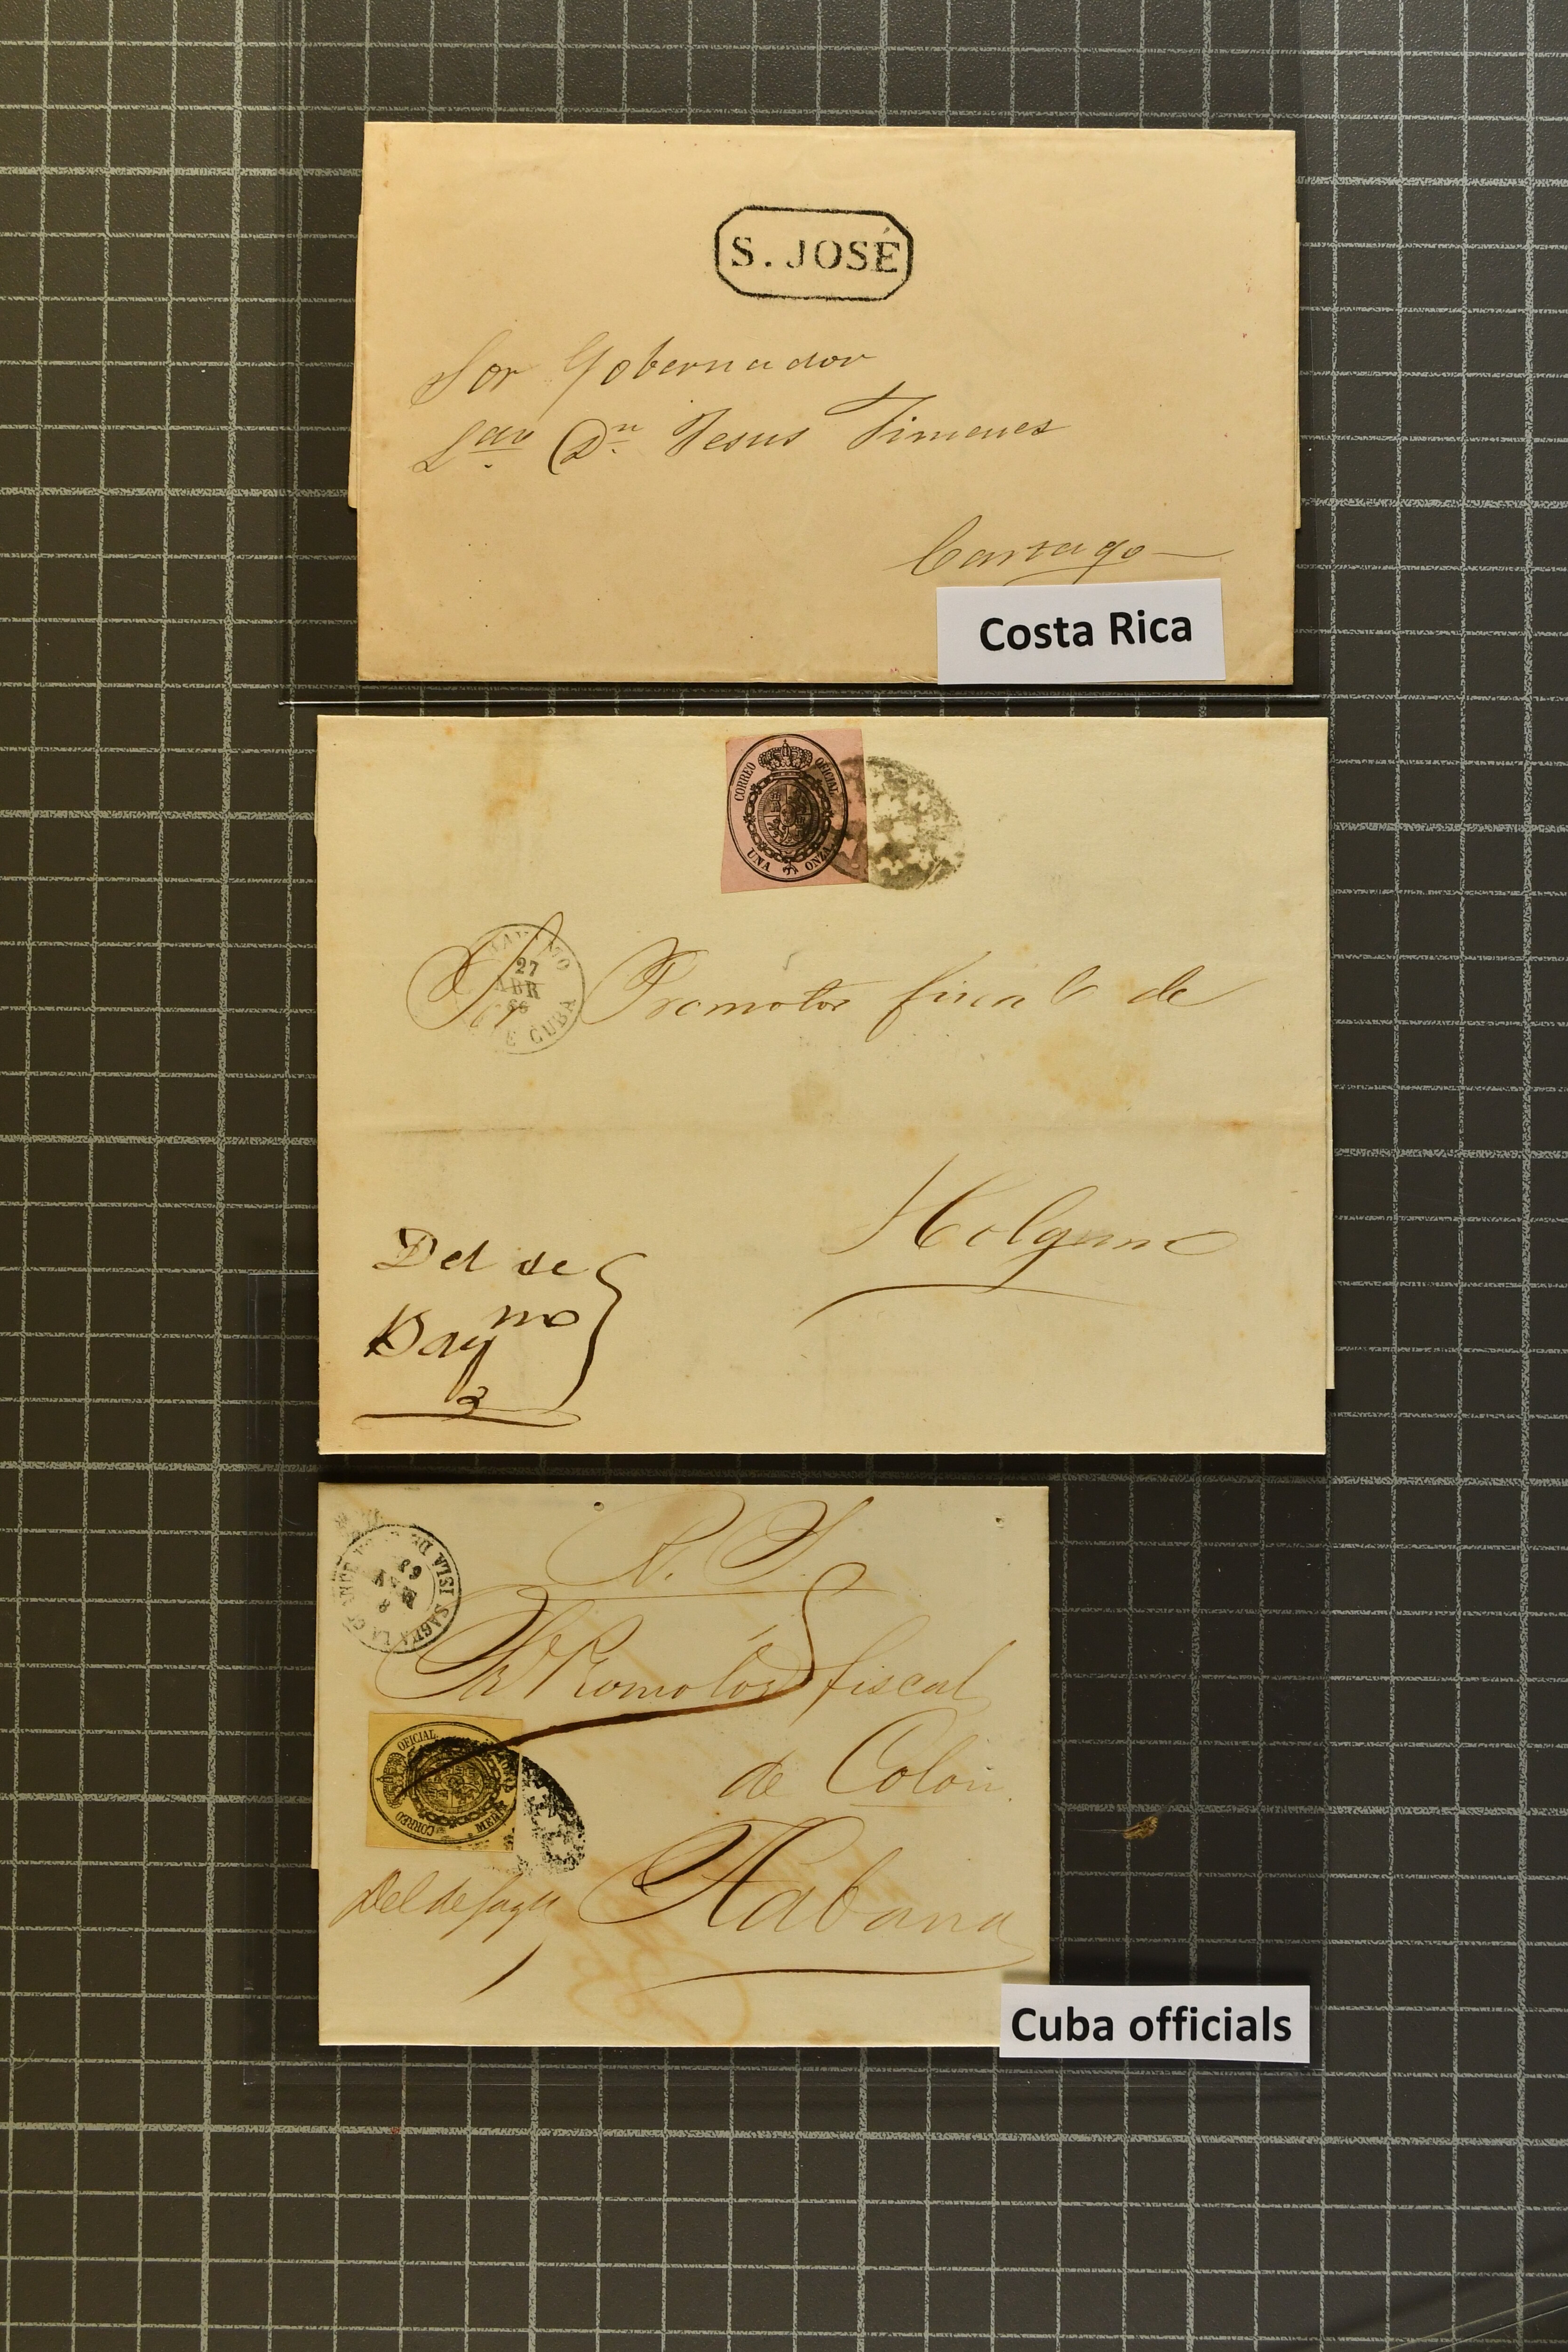 S. JOSÉ
Sor Gobernador
Ldo Dn Jesus Jimenez
Cartago
Costa Rica
CORREO OFICIAL
UNA ONZA
27
ABR
66
E CUBA
Sr Promotor fiscal de
Holguin
Del de
Baymo
R. S.
ISLA DE
SAGUA LA GRANDE
8
63
Sr Promotor fiscal
de Colon
CORREO OFICIAL
MEDIA
Habana
Del de Sagua
Cuba officials